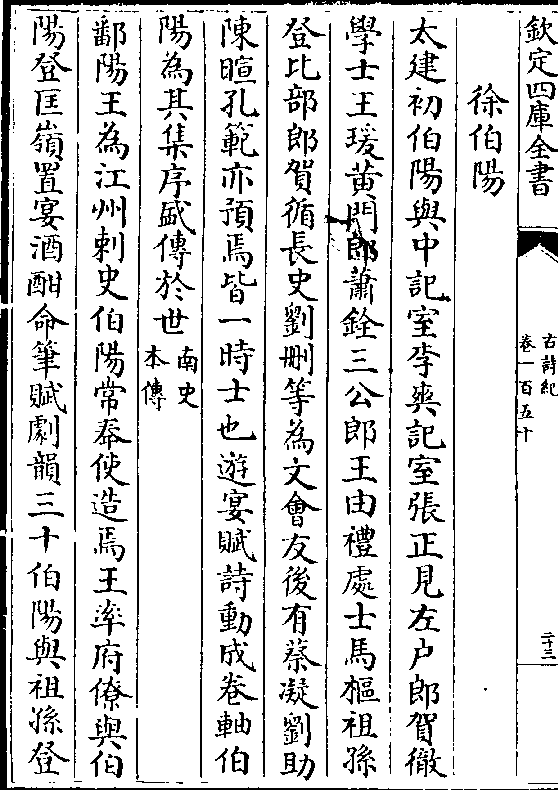 欽定四庫全書
古詩紀
卷一百五十
二十三
徐伯陽
太建初伯陽與中記室李爽記室張正見左户郎賀徹
學士王瑗黄門郎蕭銓三公郎王由禮處士馬樞祖孫
登比部郎賀循長史劉刪等為文會友後有蔡凝劉助
陳暄孔範亦預焉皆一時士也遊宴賦詩動成卷軸伯
陽為其集序盛傳於世南史
本傳
鄱陽王為江州刺史伯陽常奉使造焉王率府僚與伯
陽登匡嶺置宴酒酣命筆賦劇韻三十伯陽與祖孫登